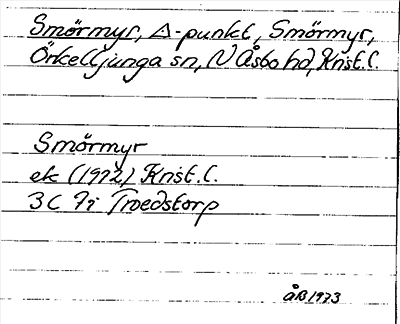 Smörmyr, Δ-punkt, Smörmyr,
Örkelljunga sn, N Åsbo hd, Krist.l.
Smörmyr
ek (1972) Krist.l.
3C 7i Troedstorp
åB 1973